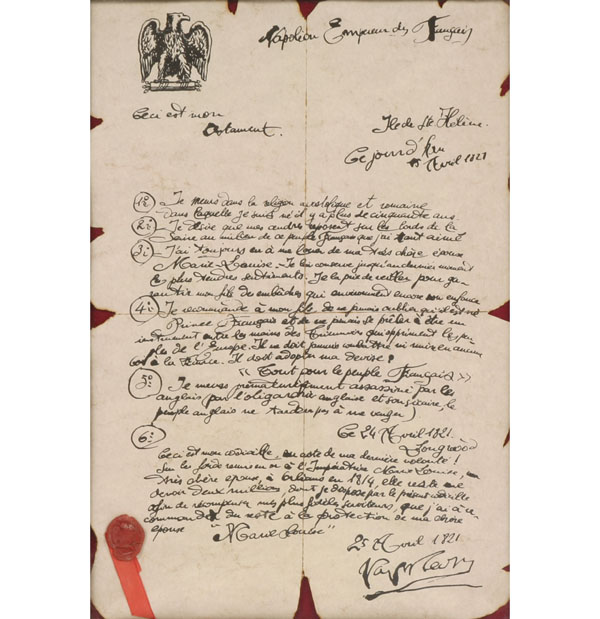 Napoléon Empereur des Français
Ceci est mon
testament.
Ile de Ste Hélène.
Ce jour d'hui
15 Avril 1821
1º Je meurs dans la religion apostolique et romaine
dans laquelle je suis né il y a plus de cinquante ans.
2º Je désire que mes cendres reposent sur les bords de la
Seine au milieu de ce peuple français que j'ai tant aimé
3º J'ai toujours eu à me louer de ma très chère épouse
Marie-Louise. Je lui conserve jusqu'au dernier moment
les plus tendres sentiments. Je la prie de veiller pour ga-
rantir mon fils des embûches qui environnent encore son enfance
4º Je recommande à mon fils de ne jamais oublier qu'il est né
Prince Français et de ne jamais se prêter à être un
instrument entre les mains des qui oppriment les peu
ples de l'Europe. Il ne doit jamais combattre ni nuire en aucun
à la France. Il doit adopter ma devise:
«Tout pour le peuple Français»
5º Je meurs prématurément assassiné par les
anglais par l'oligarchie anglaise et son sicaire, le
peuple anglais ne tardera pas à me venger)
Ce 24 Avril 1821.
Longwood
6º
Ceci est mon codicille, ou acte de ma dernière volonté!
Sur les fonds remis en or à l'Impératrice Marie Louise, ma
très chère épouse, à Orléans en 1814, elle reste me
devoir deux millions, dont je dispose par le présent codicille
afin de récompenser mes plus fidèles serviteurs, que j'ai re
commandés du reste à la protection de ma chère
épouse "Marie Louise"
25 Avril 1821
Napoléon